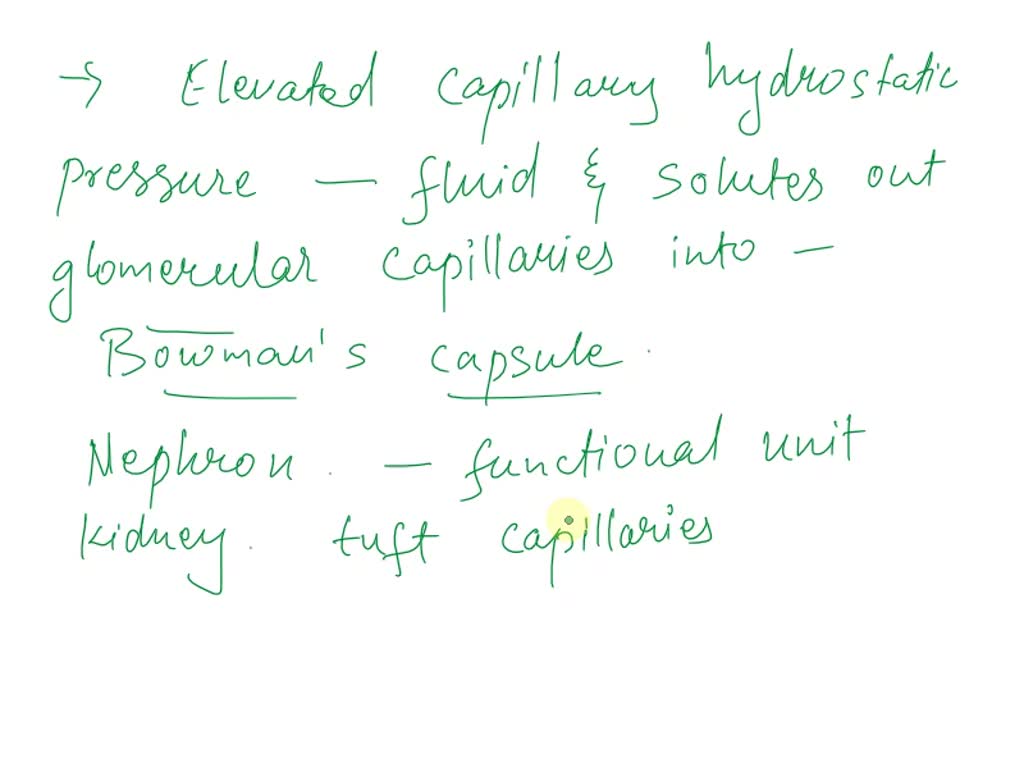 → Elevated capillary hydrostatic
pressure — fluid & solutes out
glomerular capillaries into —
Bowman's capsule.
Nephron. — functional unit
kidney. tuft capillaries